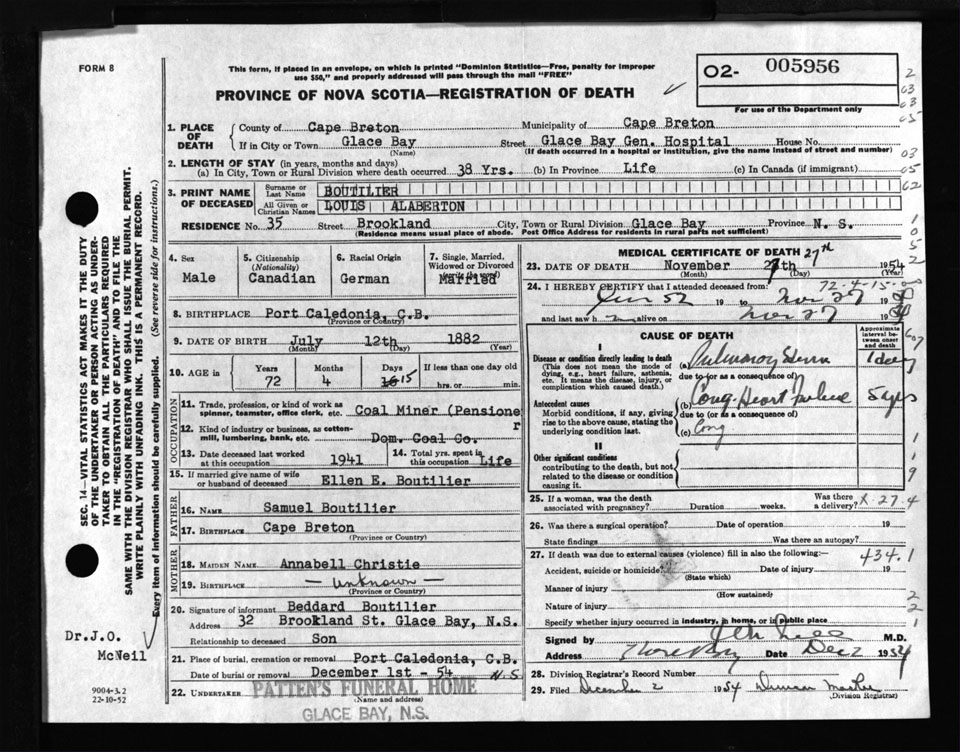 FORM 8
This form, if placed in an envelope, on which is printed "Dominion Statistics—Free, penalty for improper
use $50," and properly addressed will pass through the mail "FREE"
O2- 005956
For use of the Department only
PROVINCE OF NOVA SCOTIA—REGISTRATION OF DEATH
1. PLACE OF DEATH
County of Cape Breton Municipality of Cape Breton
If in City or Town Glace Bay Street Glace Bay Gen. Hospital House No.
(Name) (If death occurred in a hospital or institution, give the name instead of street and number)
2. LENGTH OF STAY (in years, months and days)
(a) In City, Town or Rural Division where death occurred 38 Yrs. (b) In Province Life (c) In Canada (if immigrant)
3. PRINT NAME OF DECEASED
Surname or Last Name BOUTILIER
All Given or Christian Names LOUIS ALABERTON
RESIDENCE No. 35 Street Brookland City, Town or Rural Division Glace Bay Province N. S.
(Residence means usual place of abode. Post Office Address for residents in rural parts not sufficient)
4. Sex
Male
5. Citizenship
(Nationality)
Canadian
6. Racial Origin
German
7. Single, Married,
Widowed or Divorced
Married
8. BIRTHPLACE Port Caledonia, C.B.
(Province or Country)
9. DATE OF BIRTH July 12th 1882
(Month) (Day) (Year)
10. AGE in
Years Months Days If less than one day old
72 4 15 hrs. or min.
OCCUPATION
11. Trade, profession, or kind of work as
spinner, teamster, office clerk, etc. Coal Miner (Pensioner
12. Kind of industry or business, as cotton-
mill, lumbering, bank, etc. Dom. Coal Co.
13. Date deceased last worked
at this occupation 1941
14. Total yrs. spent in
this occupation Life
15. If married give name of wife
or husband of deceased Ellen E. Boutilier
FATHER
16. NAME Samuel Boutilier
17. BIRTHPLACE Cape Breton
(Province or Country)
MOTHER
18. MAIDEN NAME Annabell Christie
19. BIRTHPLACE — Unknown —
(Province or Country)
20. Signature of informant Beddard Boutilier
Address 32 Brookland St. Glace Bay, N.S.
Relationship to deceased Son
21. Place of burial, cremation or removal Port Caledonia, C.B.
Date of burial or removal December 1st - 54 N.S.
22. UNDERTAKER PATTEN'S FUNERAL HOME
(Name and address)
GLACE BAY, N.S.
MEDICAL CERTIFICATE OF DEATH
27th
23. DATE OF DEATH November 27th 1954
(Month) (Day) (Year)
72-4-15-00
24. I HEREBY CERTIFY that I attended deceased from:
Jun 52 19 to Nov 27 19
and last saw h m alive on Nov 27 19
CAUSE OF DEATH
Approximate interval between onset and death
I
Disease or condition directly leading to death
(This does not mean the mode of
dying, e.g., heart failure, asthenia,
etc. It means the disease, injury, or
complication which caused death.)
(a) Pulmonary 1 day
due to (or as a consequence of)
Antecedent causes
Morbid conditions, if any, giving
rise to the above cause, stating the
underlying condition last.
(b) Cong. Heart Failure 5 yrs
due to (or as a consequence of)
(c) Cong
II
Other significant conditions
contributing to the death, but not
related to the disease or condition
causing it.
25. If a woman, was the death
associated with pregnancy? Duration weeks. Was there a delivery?
X-27-4
26. Was there a surgical operation? Date of operation 19
State findings Was there an autopsy?
27. If death was due to external causes (violence) fill in also the following:
434.1
Accident, suicide or homicide? Date of injury 19
(State which)
Manner of injury
(How sustained)
Nature of injury
Specify whether injury occurred in industry, in home, or in public place
Signed by M.D.
Address Glace Bay Date Dec 2 1954
28. Division Registrar's Record Number
29. Filed December 2 1954 Duncan
(Division Registrar)
SEC. 14—VITAL STATISTICS ACT MAKES IT THE DUTY
OF THE UNDERTAKER OR PERSON ACTING AS UNDER-
TAKER TO OBTAIN ALL THE PARTICULARS REQUIRED
IN THE "REGISTRATION OF DEATH" AND TO FILE THE
SAME WITH THE DIVISION REGISTRAR WHO SHALL ISSUE THE BURIAL PERMIT.
WRITE PLAINLY WITH UNFADING INK. THIS IS A PERMANENT RECORD.
Every item of information should be carefully supplied. (See reverse side for instructions.)
Dr.J.O.
McNeil
9004-3.2
22-10-52
2
03
03
05
03
05
62
1
0
5
2
607
1
1
9
1
2
2
1